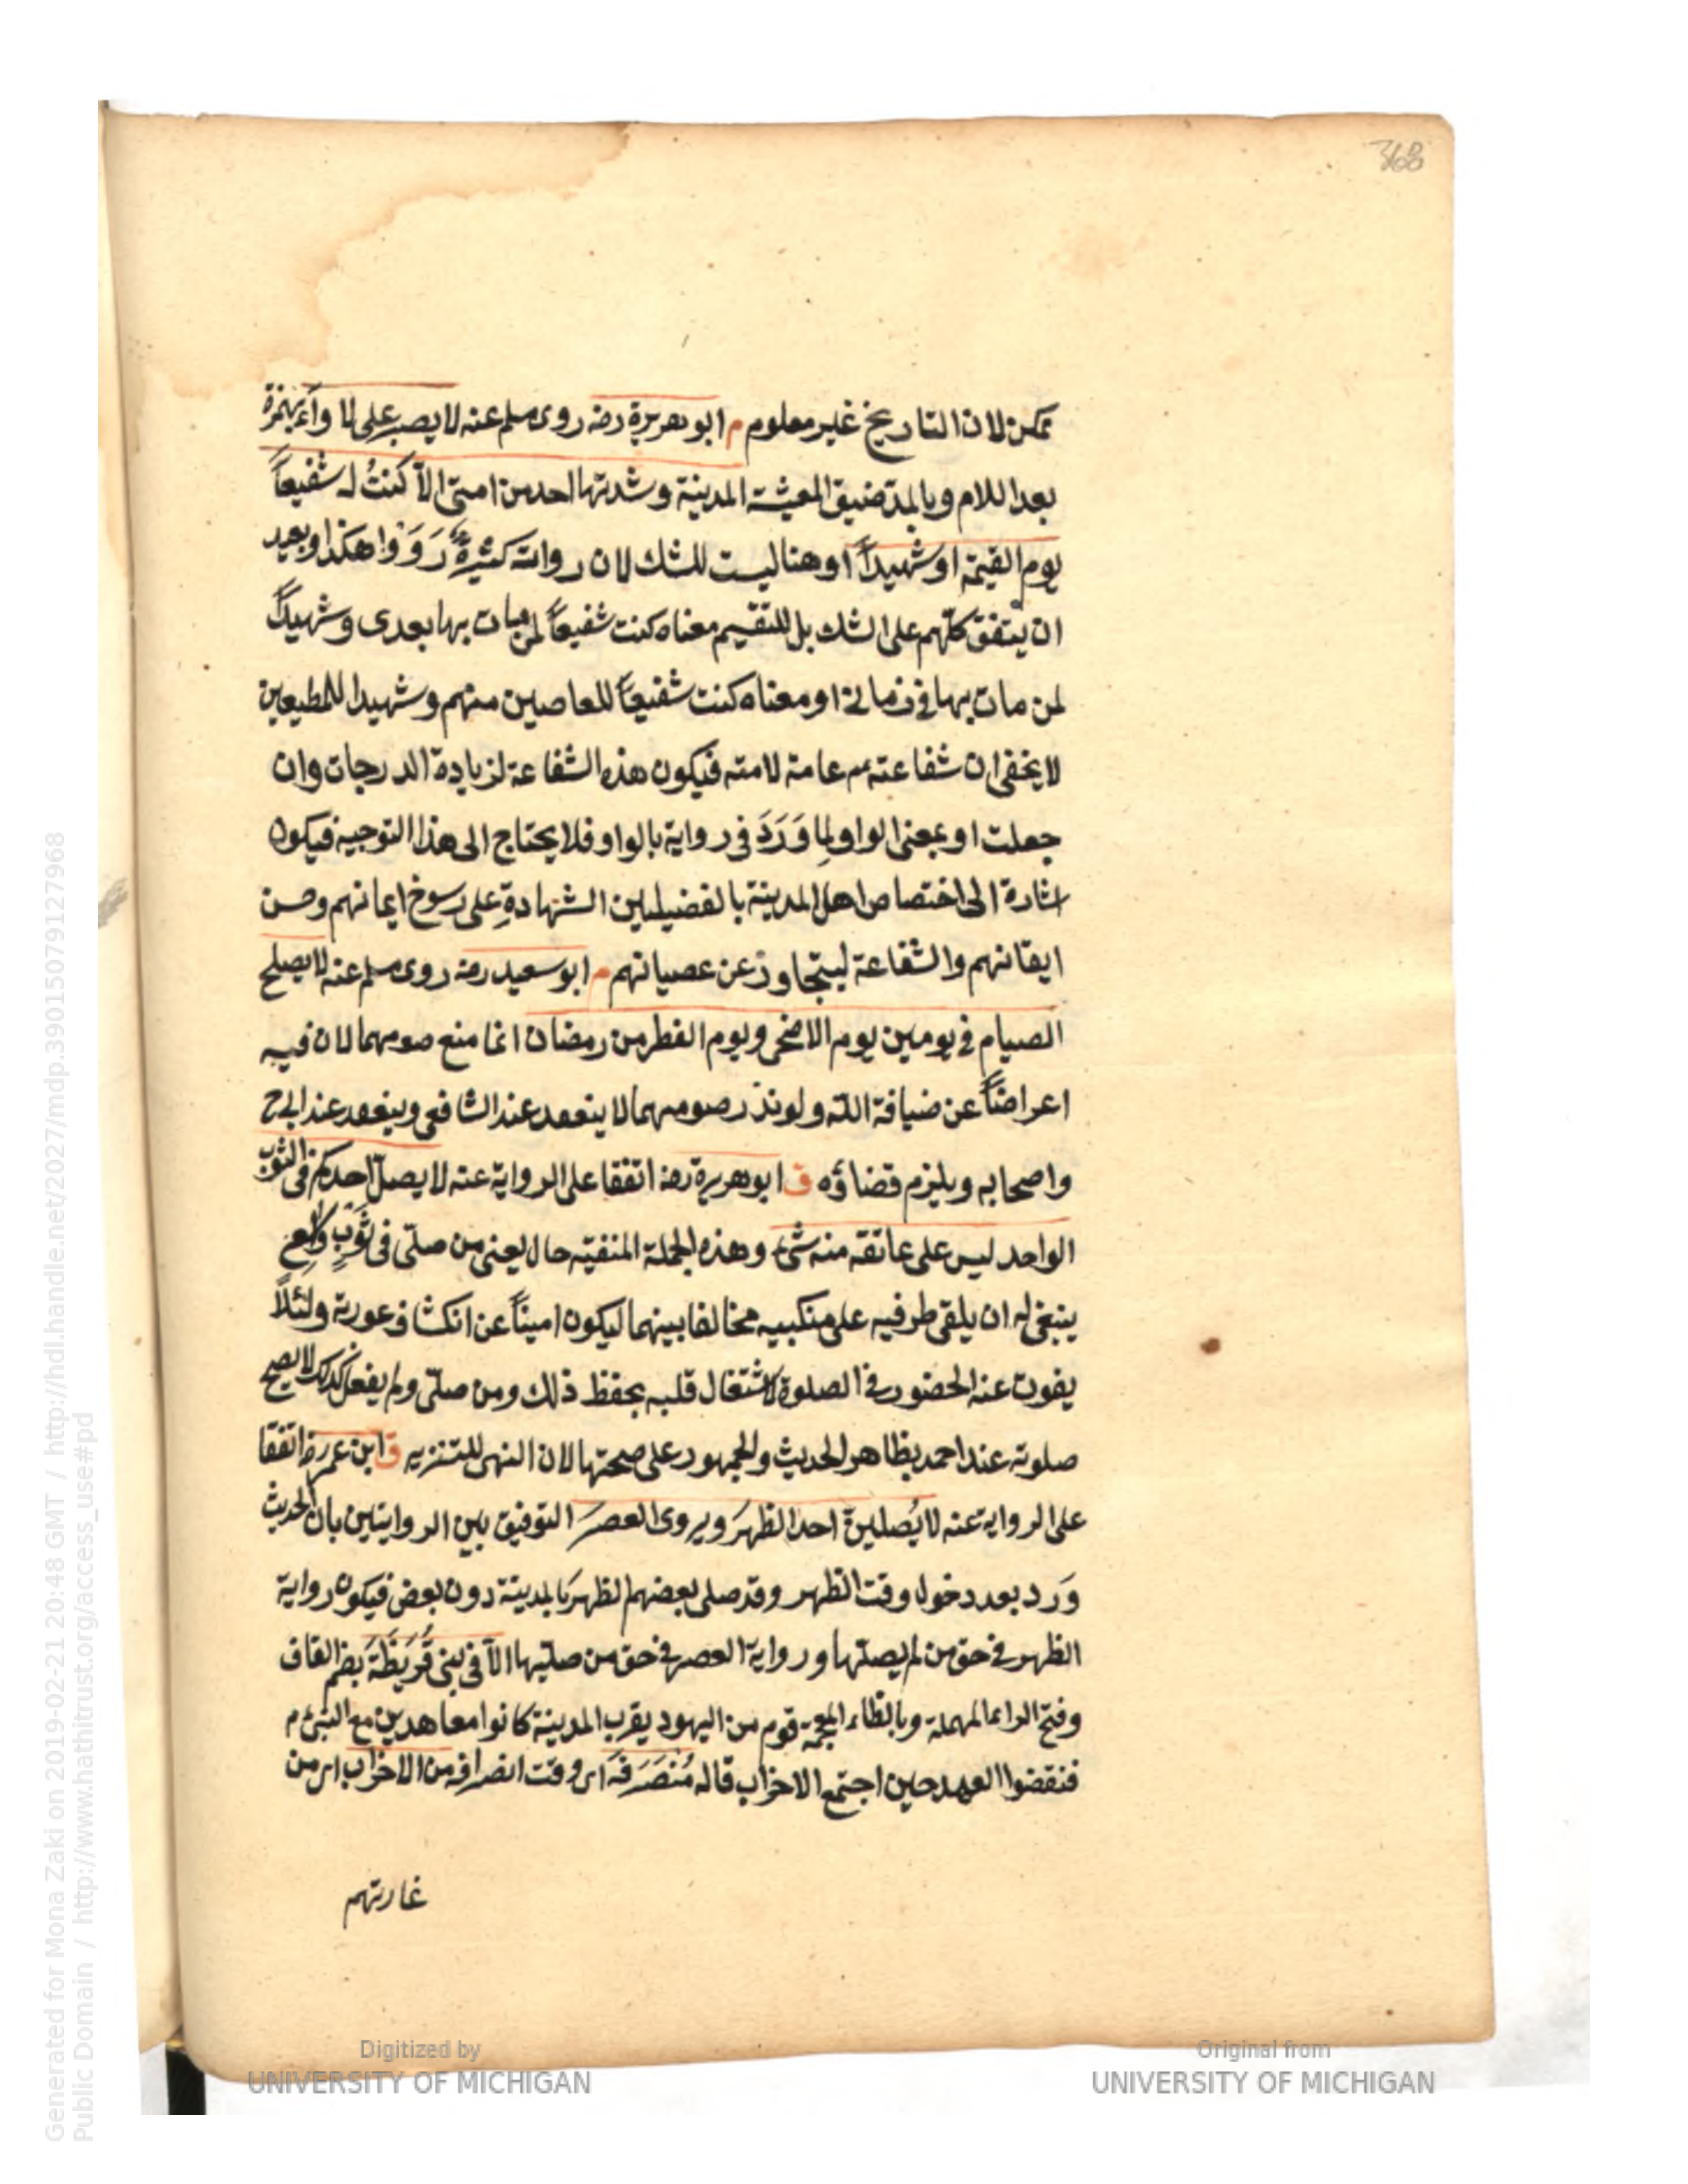 368
ممكن لان التاريخ غير معلوم م ابو هريرة رضه روى مسلم عنه لا يصبر على لاواء بهمزة
بعد اللام وبالمد ضيق المعيشة المدينة وشدتها احد من امتى الا كنتُ له شفيعاً
يوم القيمة او شهيداً او هنا ليست للشك لان رواته كثيرةٌ رَوَوْا هكذا وبعيد
ان يتفق كلّهم على الشك بل للتقسيم معناه كنت شفيعاً لمن مات بها بعدى وشهيداً
لمن مات بها فى زمانى او معناه كنت شفيعاً للعاصين منهم وشهيدا للمطيعين
لا يخفى ان شفاعته عم عامة لامته فيكون هذه الشفاعة لزيادة الدرجات وان
جعلت او بمعنى الواو لما وَرَدَ فى رواية بالواو فلا يحتاج الى هذا التوجيه فيكون
اشارة الى اختصاص اهل المدينة بالفضيلين الشهادةِ على رسوخ ايمانهم وحسن
ايقانهم والشفاعة ليتجاوز عن عصيانهم م ابو سعيد رضه روى مسلم عنه لا يصلح
الصيام فى يومين يوم الاضحى ويوم الفطر من رمضان انما منع صومهما لان فيه
اعراضاً عن ضيافة الله ولو نذر صومهما لا ينعقد عند الشافعى وينعقد عند ابى ح
واصحابه ويلزم قضاؤه ق ابو هريرة رضه اتفقا على الرواية عنه لا يصلّ احدكم فى الثوب
الواحد ليس على عاتقه منه شئ وهذه الجملة المنفيّه حال يعنى من صلّى فى ثَوبٍ واسع
ينبغى له ان يلقى طرفيه على منكبيه مخالفا بينهما ليكون اميناً عن انكشاف عورته ولئلّا
يفوت عنه الحضور فى الصلوة لاشتغال قلبه بحفظ ذلك ومن صلّى ولم يفعل كذلك لا يصح
صلوته عند احمد بظاهر الحديث والجمهور على صحتها لان النهى للتنزيه ق ابن عمر رضه اتفقا
على الرواية عنه لا يُصلينّ احد الظهرَ ويروى العصرَ التوفيق بين الروايتين بان الحديث
وَرد بعد دخول وقت الظهر وقد صلى بعضهم الظهرَ بالمدينة دون بعض فيكون رواية
الظهر فى حق من لم يصلّها ورواية العصر فى حق من صلّيها الّا فى بنى قُرَيْظَةَ بضم القاف
وفتح الراء المهملة وبالظاء المعجمة قوم من اليهود بقرب المدينة كانوا معاهدين مع النبى م
فنقضوا العهد حين اجتمع الاحزاب قاله مُنْصَرَفَه اى وقت انصرافه من الاحزاب اى من
غارتهم
Generated for Mona Zaki on 2019-02-21 20:48 GMT / http://hdl.handle.net/2027/mdp.39015079127968
Public Domain / http://www.hathitrust.org/access_use#pd
Digitized by
UNIVERSITY OF MICHIGAN
Original from
UNIVERSITY OF MICHIGAN